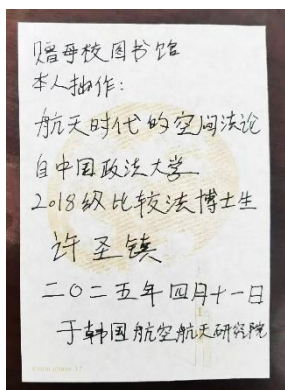 赠母校图书馆
本人拙作:
航天时代的空间法论
自中国政法大学
2018级比较法博士生
许圣镇
二〇二五年四月十一日
于韩国航空航天研究院